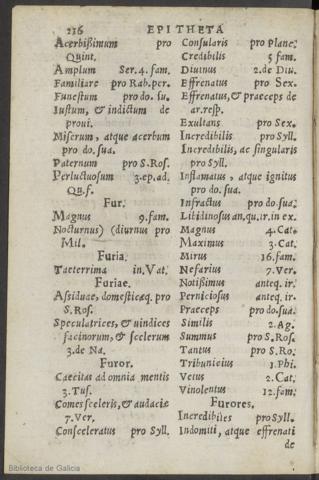 236 EPITHETA
Acerbißimum pro
Quint.
Amplum Ser. 4. fam.
Familiare pro Rab. per.
Funestum pro do. su.
Iustum, & indictum de
proui.
Miserum, atque acerbum
pro do. sua.
Paternum pro S. Ros.
Perluctuosum 3. ep. ad.
Qu. f.
Fur.
Magnus 9. fam.
Nocturnus) (diurnus pro
Mil.
Furia.
Taeterrima in. Vat.
Furiae.
Assiduae, domesticaeq. pro
S. Ros.
Speculatrices, & uindices
facinorum, & scelerum
3. de Na.
Furor.
Caecitas ad omnia mentis
3. Tus.
Comes sceleris, & audaciae
7. Ver.
Consceleratus pro Syll.
Consularis pro Planc.
Credibilis 5 fam.
Diuinus 2. de Diu.
Effrenatus pro Sex.
Effrenatus, & praeceps de
ar. resp.
Exultans pro Sex.
Incredibilis pro Syll.
Incredibilis, ac singularis
pro Syll.
Inflamatus, atque ignitus
pro do. sua.
Infractus pro do. sua.
Libidinosus an, qu. ir. in ex.
Magnus 4. Cat.
Maximus 3. Cat.
Mirus 16. fam.
Nefarius 7. Ver.
Notißimus anteq. ir.
Perniciosus anteq. ir.
Praeceps pro do. sua.
Similis 2. Ag.
Summus pro S. Ros.
Tantus pro S. Ro.
Tribunicius 1. Phi.
Vetus 2. Cat.
Vinolentus 12. fam.
Furores.
Incredibiles pro Syll.
Indomiti, atque effrenati
de
Biblioteca de Galicia